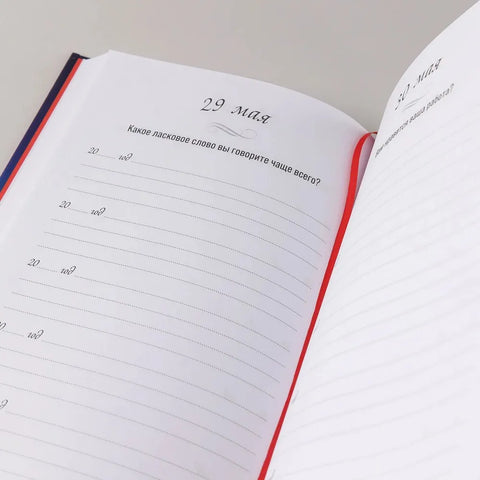 29 мая
Какое ласковое слово вы говорите чаще всего?
20 год
20 год
20 год
20 год
год
30 мая
нравится ваша работа?